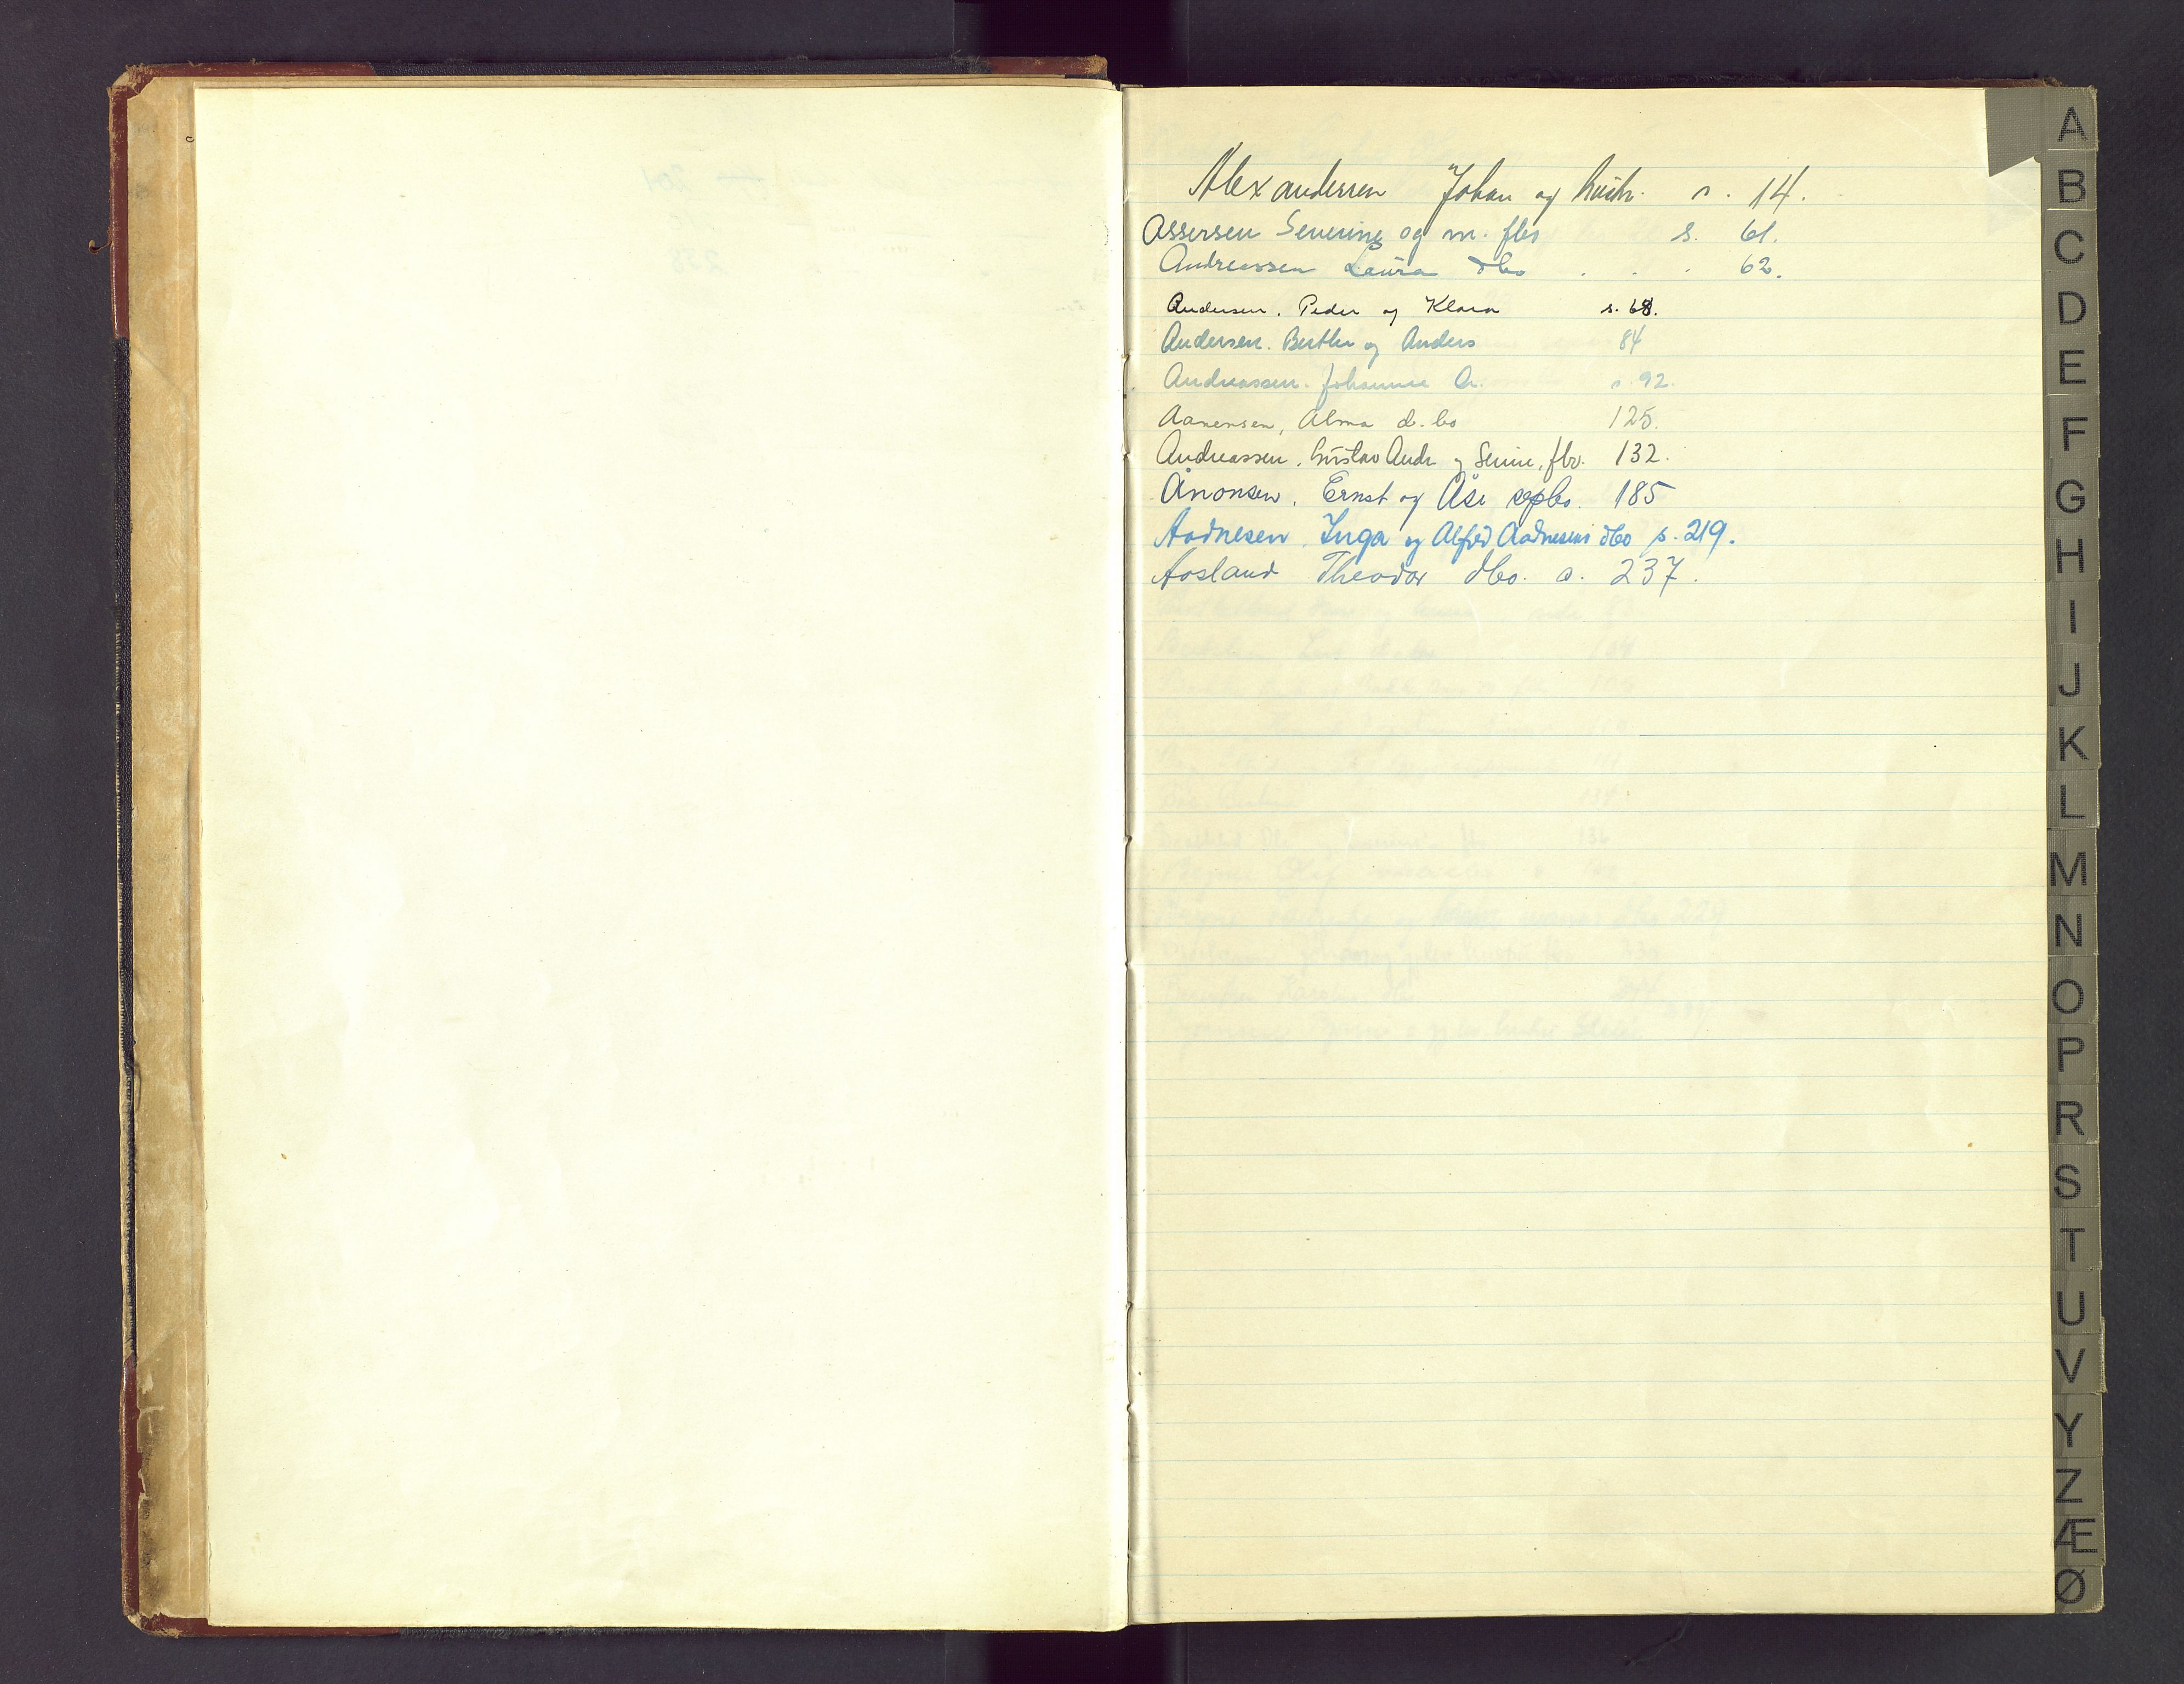 Alexandersen Johan og hustr. s. 14.
Assersen Severine og m. fbo s. 61.
Andreassen Laura dbo . . . 62.
Andersen. Peder og Klara s. 68.
Andersen. Berthe og Anders 84
Andreassen. Johanne A. s. 92.
Aanensen, Alma d. bo 125.
Andreassen. Gustav Andr. og Serine, fbo. 132.
Ånonsen. Ernst og Åse sepbo. 185
Aadnesen Inga og Alfred Aadnesens dbo s. 219.
Aasland Theodor dbo. s. 237.
A
B
C
D
E
F
G
H
I
J
K
L
M
N
O
P
R
S
T
U
V
Y
Z
Æ
Ø